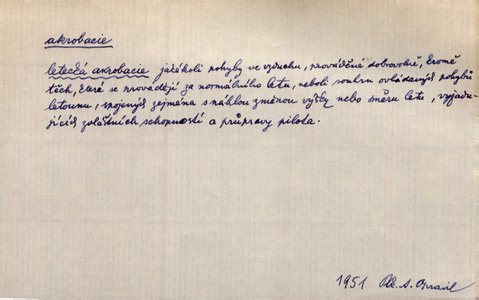 akrobacie
letecká akrobacie jakékoli pohyby ve vzduchu, prováděné dobrovolně, kromě
těch, které se provádějí za normálního letu, neboli souhrn ovládaných pohybů
letounu, spojených zejména s náhlou změnou výšky nebo směru letu, vyžadu-
jících zvláštních schopností a průpravy pilota.
1951